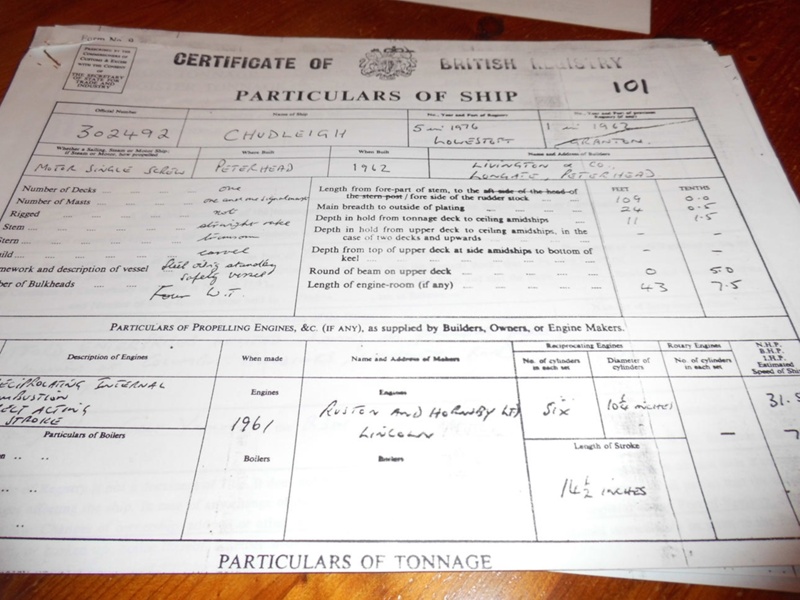 Form No. 9
PRESCRIBED BY THE
COMMISSIONERS OF
CUSTOMS & EXCISE
WITH THE CONSENT
OF
THE SECRETARY
OF STATE FOR
TRADE AND
INDUSTRY
CERTIFICATE OF BRITISH REGISTRY
101
PARTICULARS OF SHIP
Official Number
Name of Ship
No., Year and Port of Registry
No., Year and Port of previous Registry (if any)
302492
CHUDLEIGH
5 in 1976
LOWESTOFT
1 in 1962
GRANTON
Whether a Sailing, Steam or Motor Ship; if Steam or Motor, how propelled
Where Built
When Built
Name and Address of Builders
MOTOR SINGLE SCREW
PETERHEAD
1962
LIVINGTON & CO.,
LONGATE, PETERHEAD.
Number of Decks one
Number of Masts
Rigged not
Stem straight rake
Stern transom
uild carvel
mework and description of vessel Steel standby
safety vessel
er of Bulkheads Four W.T.
FEET TENTHS
Length from fore-part of stem, to the aft side of the head of
the stern post / fore side of the rudder stock 109 0.0
Main breadth to outside of plating 24 0.5
Depth in hold from tonnage deck to ceiling amidships 11 1.5
Depth in hold from upper deck to ceiling amidships, in the
case of two decks and upwards – –
Depth from top of upper deck at side amidships to bottom of
keel – –
Round of beam on upper deck 0 5.0
Length of engine-room (if any) 43 7.5
PARTICULARS OF PROPELLING ENGINES, &C. (IF ANY), as supplied by Builders, Owners, or Engine Makers.
Description of Engines
When made
Name and Address of Makers
Reciprocating Engines
Rotary Engines
No. of cylinders in each set
Diameter of cylinders
No. of cylinders in each set
N.H.P.
B.H.P.
I.H.P.
Estimated
Speed of Ship
ECIPROCATING INTERNAL
MBUSTION
ECT ACTING
STROKE
Engines
1961
Engines
RUSTON AND HORNSBY LTD
LINCOLN
SIX
10¼ INCHES
–
31.
7
Particulars of Boilers
Boilers
Boilers
Length of Stroke
14½ INCHES
PARTICULARS OF TONNAGE